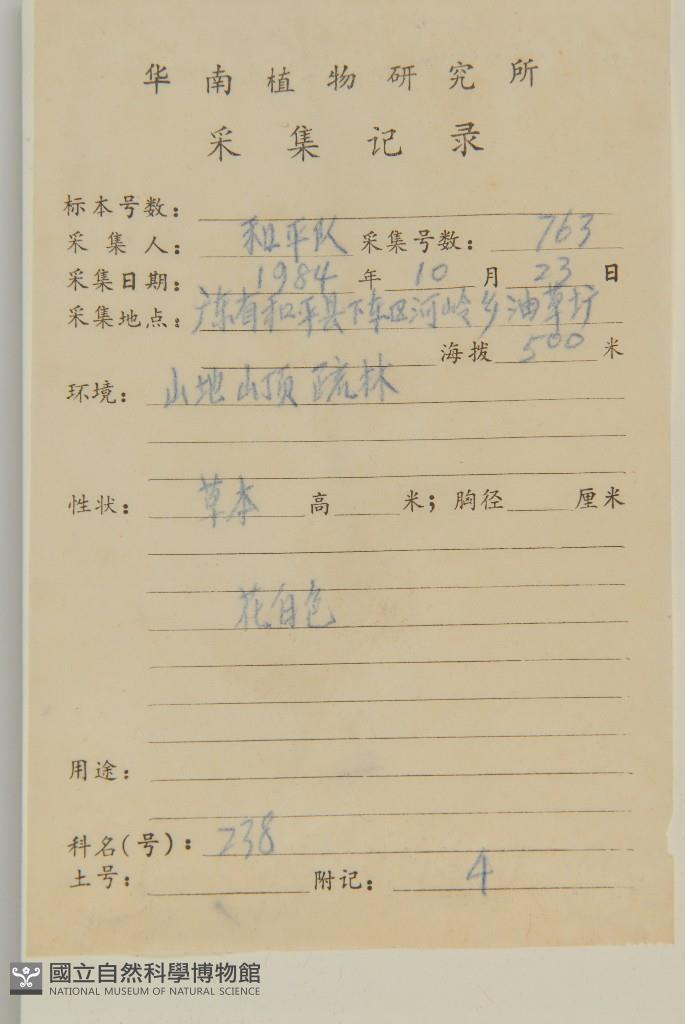 华南植物研究所
采集记录
标本号数：
采集人：和平队 采集号数：763
采集日期：1984年10月23日
采集地点：广东省和平县下车区河岭乡油草圹
海拨500米
环境：山地山顶疏林
性状：草本 高 米；胸径 厘米
花白色
用途：
科名(号)：238
土号： 附记：4
國立自然科學博物館
NATIONAL MUSEUM OF NATURAL SCIENCE